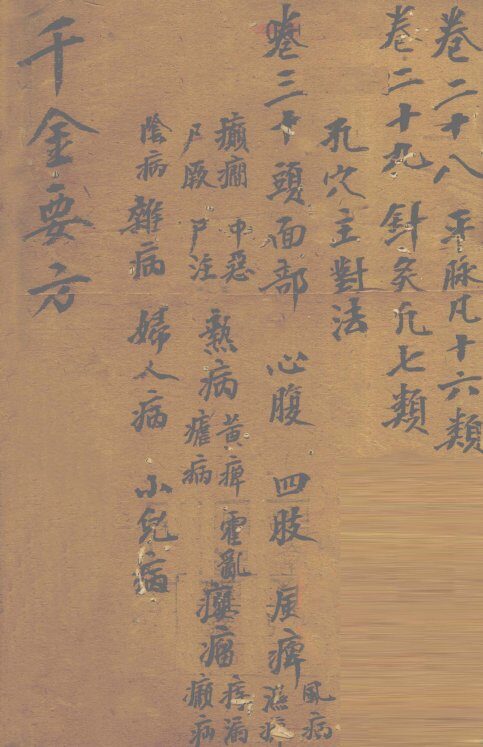 卷二十八 平脉凡十六類
卷二十九 針灸凡七類
孔穴主對法
卷三十頭面部 心腹 四肢 風痺 風病 濕痺
癲癇 尸厥 中惡 尸注 熱病 黃疸 瘧病 霍亂 癭瘤 痔漏 癲病
陰病 雜病 婦人病 小兒病
千金要方